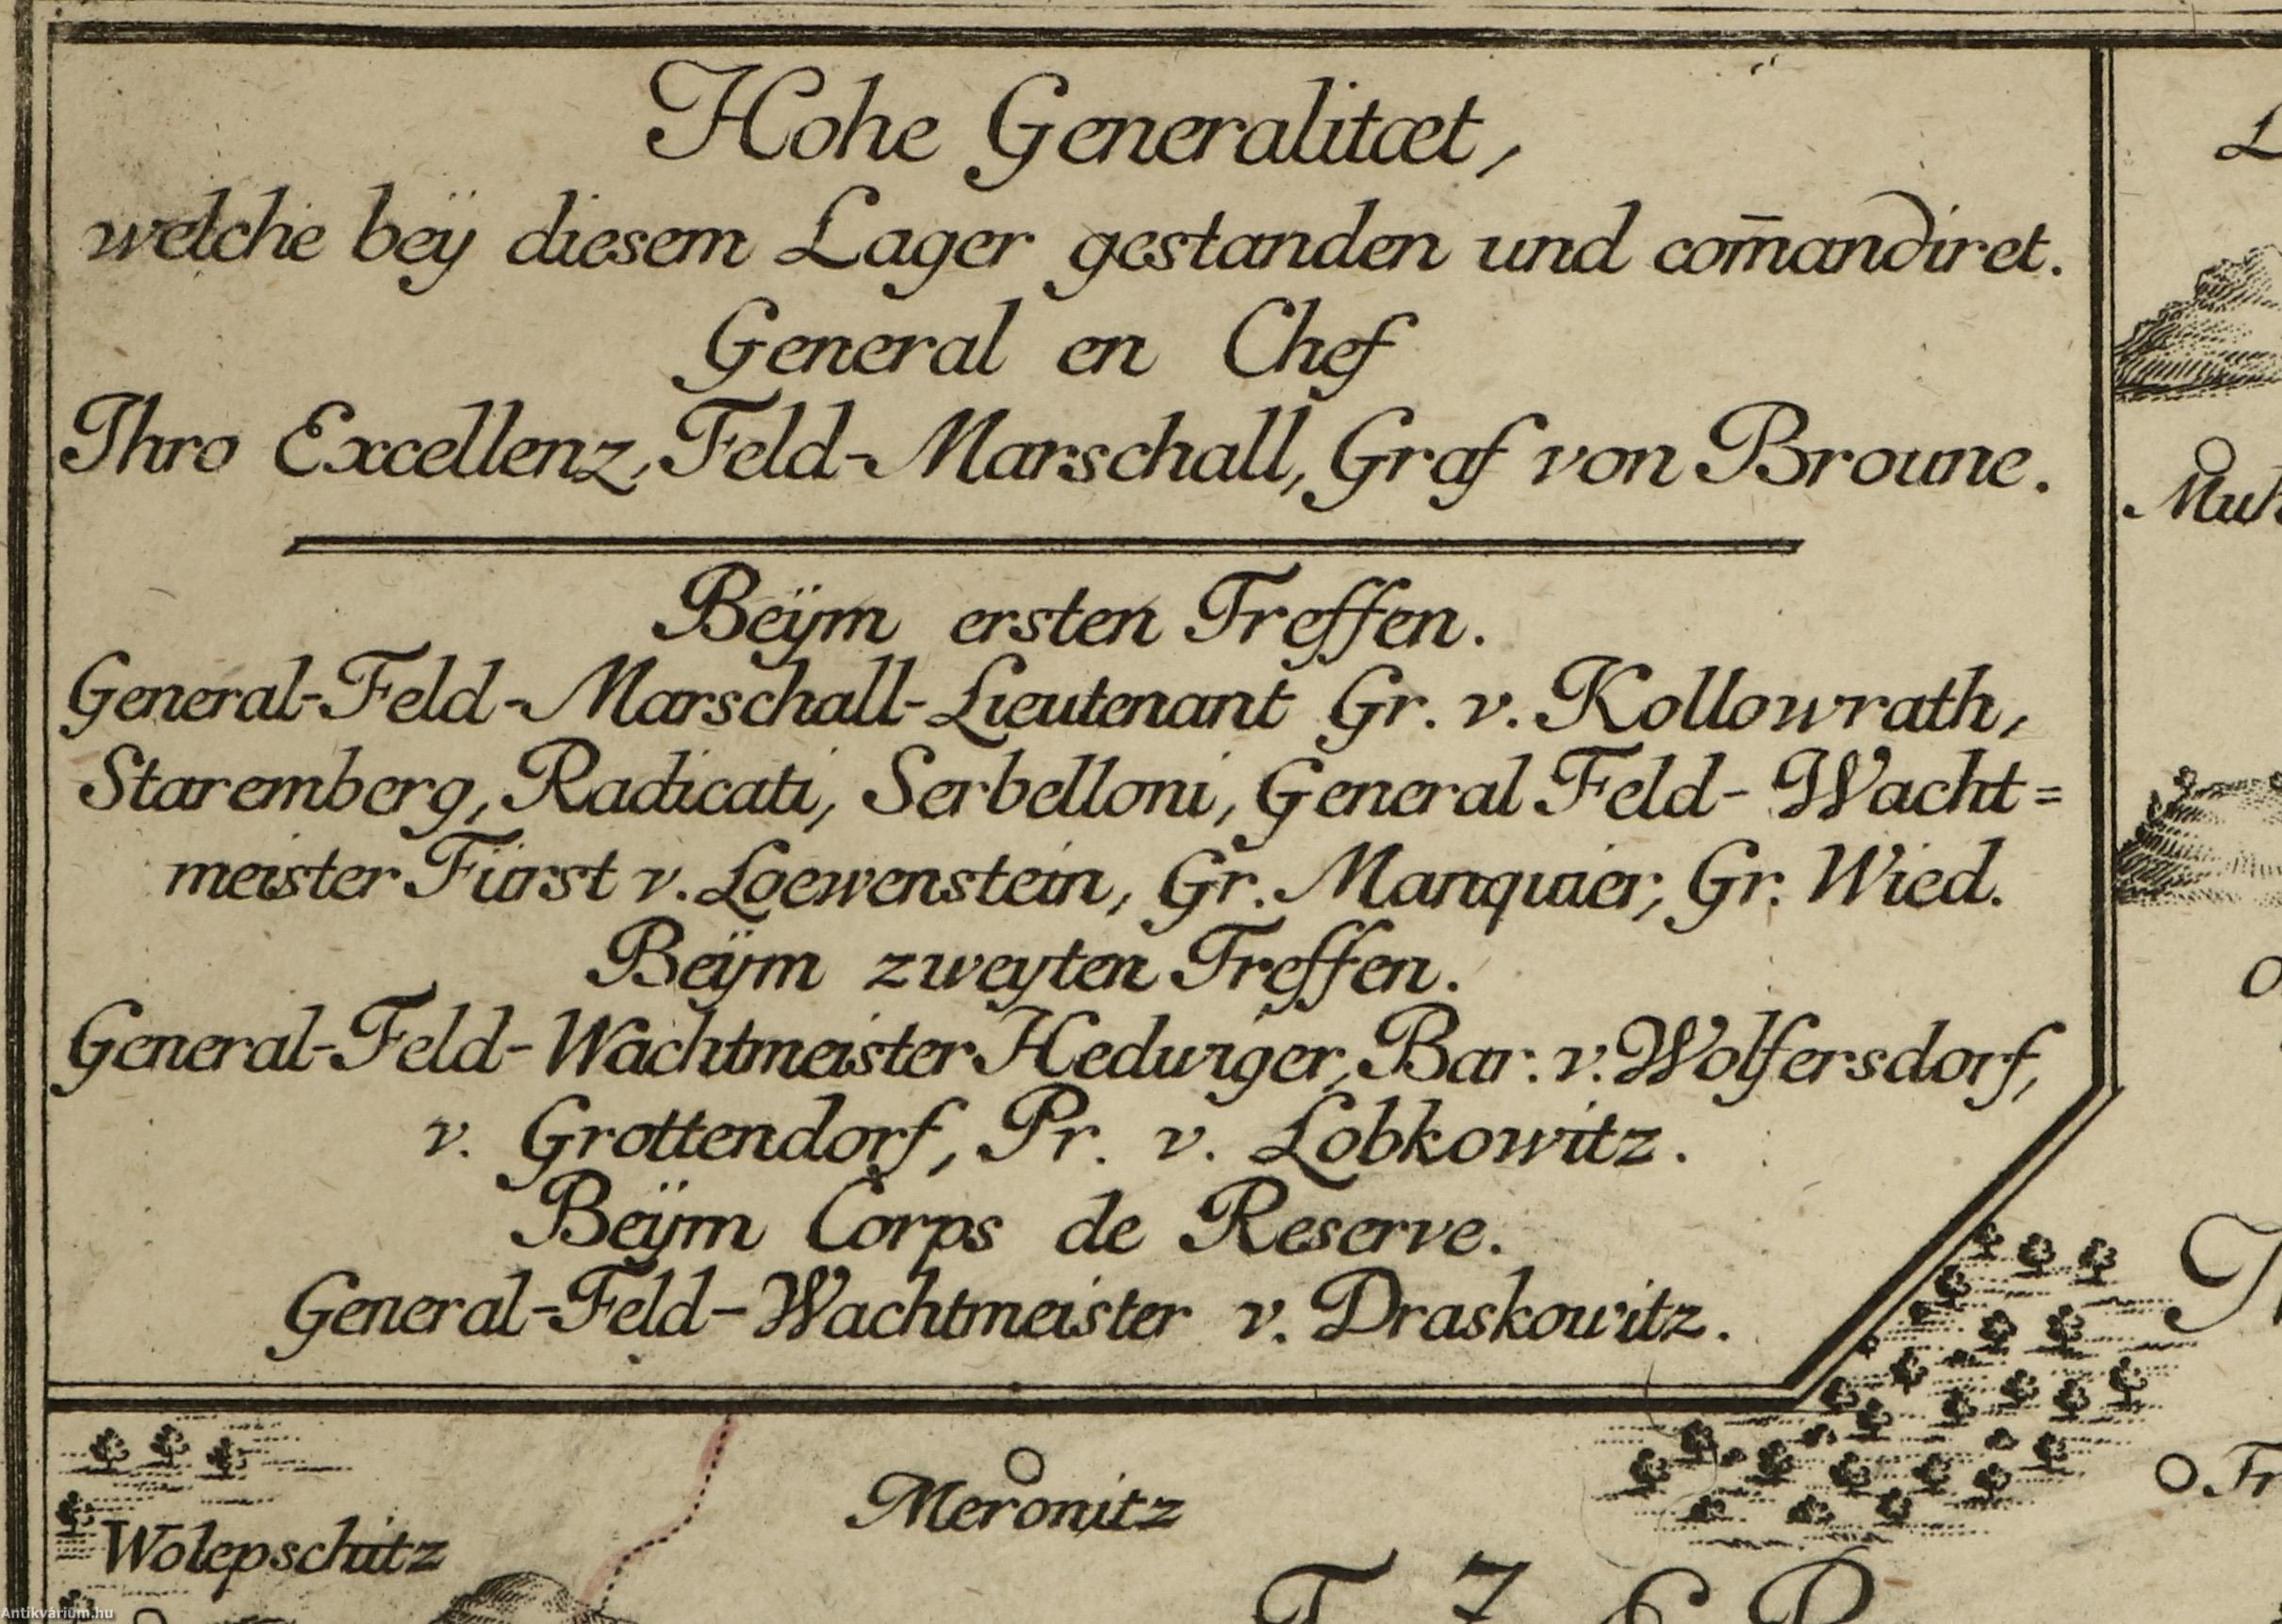 Hohe Generalitæt,
welche beÿ diesem Lager gestanden und com̄andiret.
General en Chef
Ihro Excellenz, Feld-Marschall, Graf von Broune.
Beÿm ersten Treffen.
General-Feld-Marschall-Lieutenant Gr. v. Kollowrath,
Staremberg, Radicati, Serbelloni, General Feld-Wacht=
meister Fürst v. Loewenstein, Gr. Manquier, Gr. Wied.
Beÿm zweyten Treffen.
General-Feld-Wachtmeister Hedwiger, Bar. v. Wolfersdorf,
v. Grottendorf, Pr. v. Lobkowitz.
Beÿm Corps de Reserve.
General-Feld-Wachtmeister v. Draskowitz.
Meronitz
Wolepschütz
Antikvárium.hu